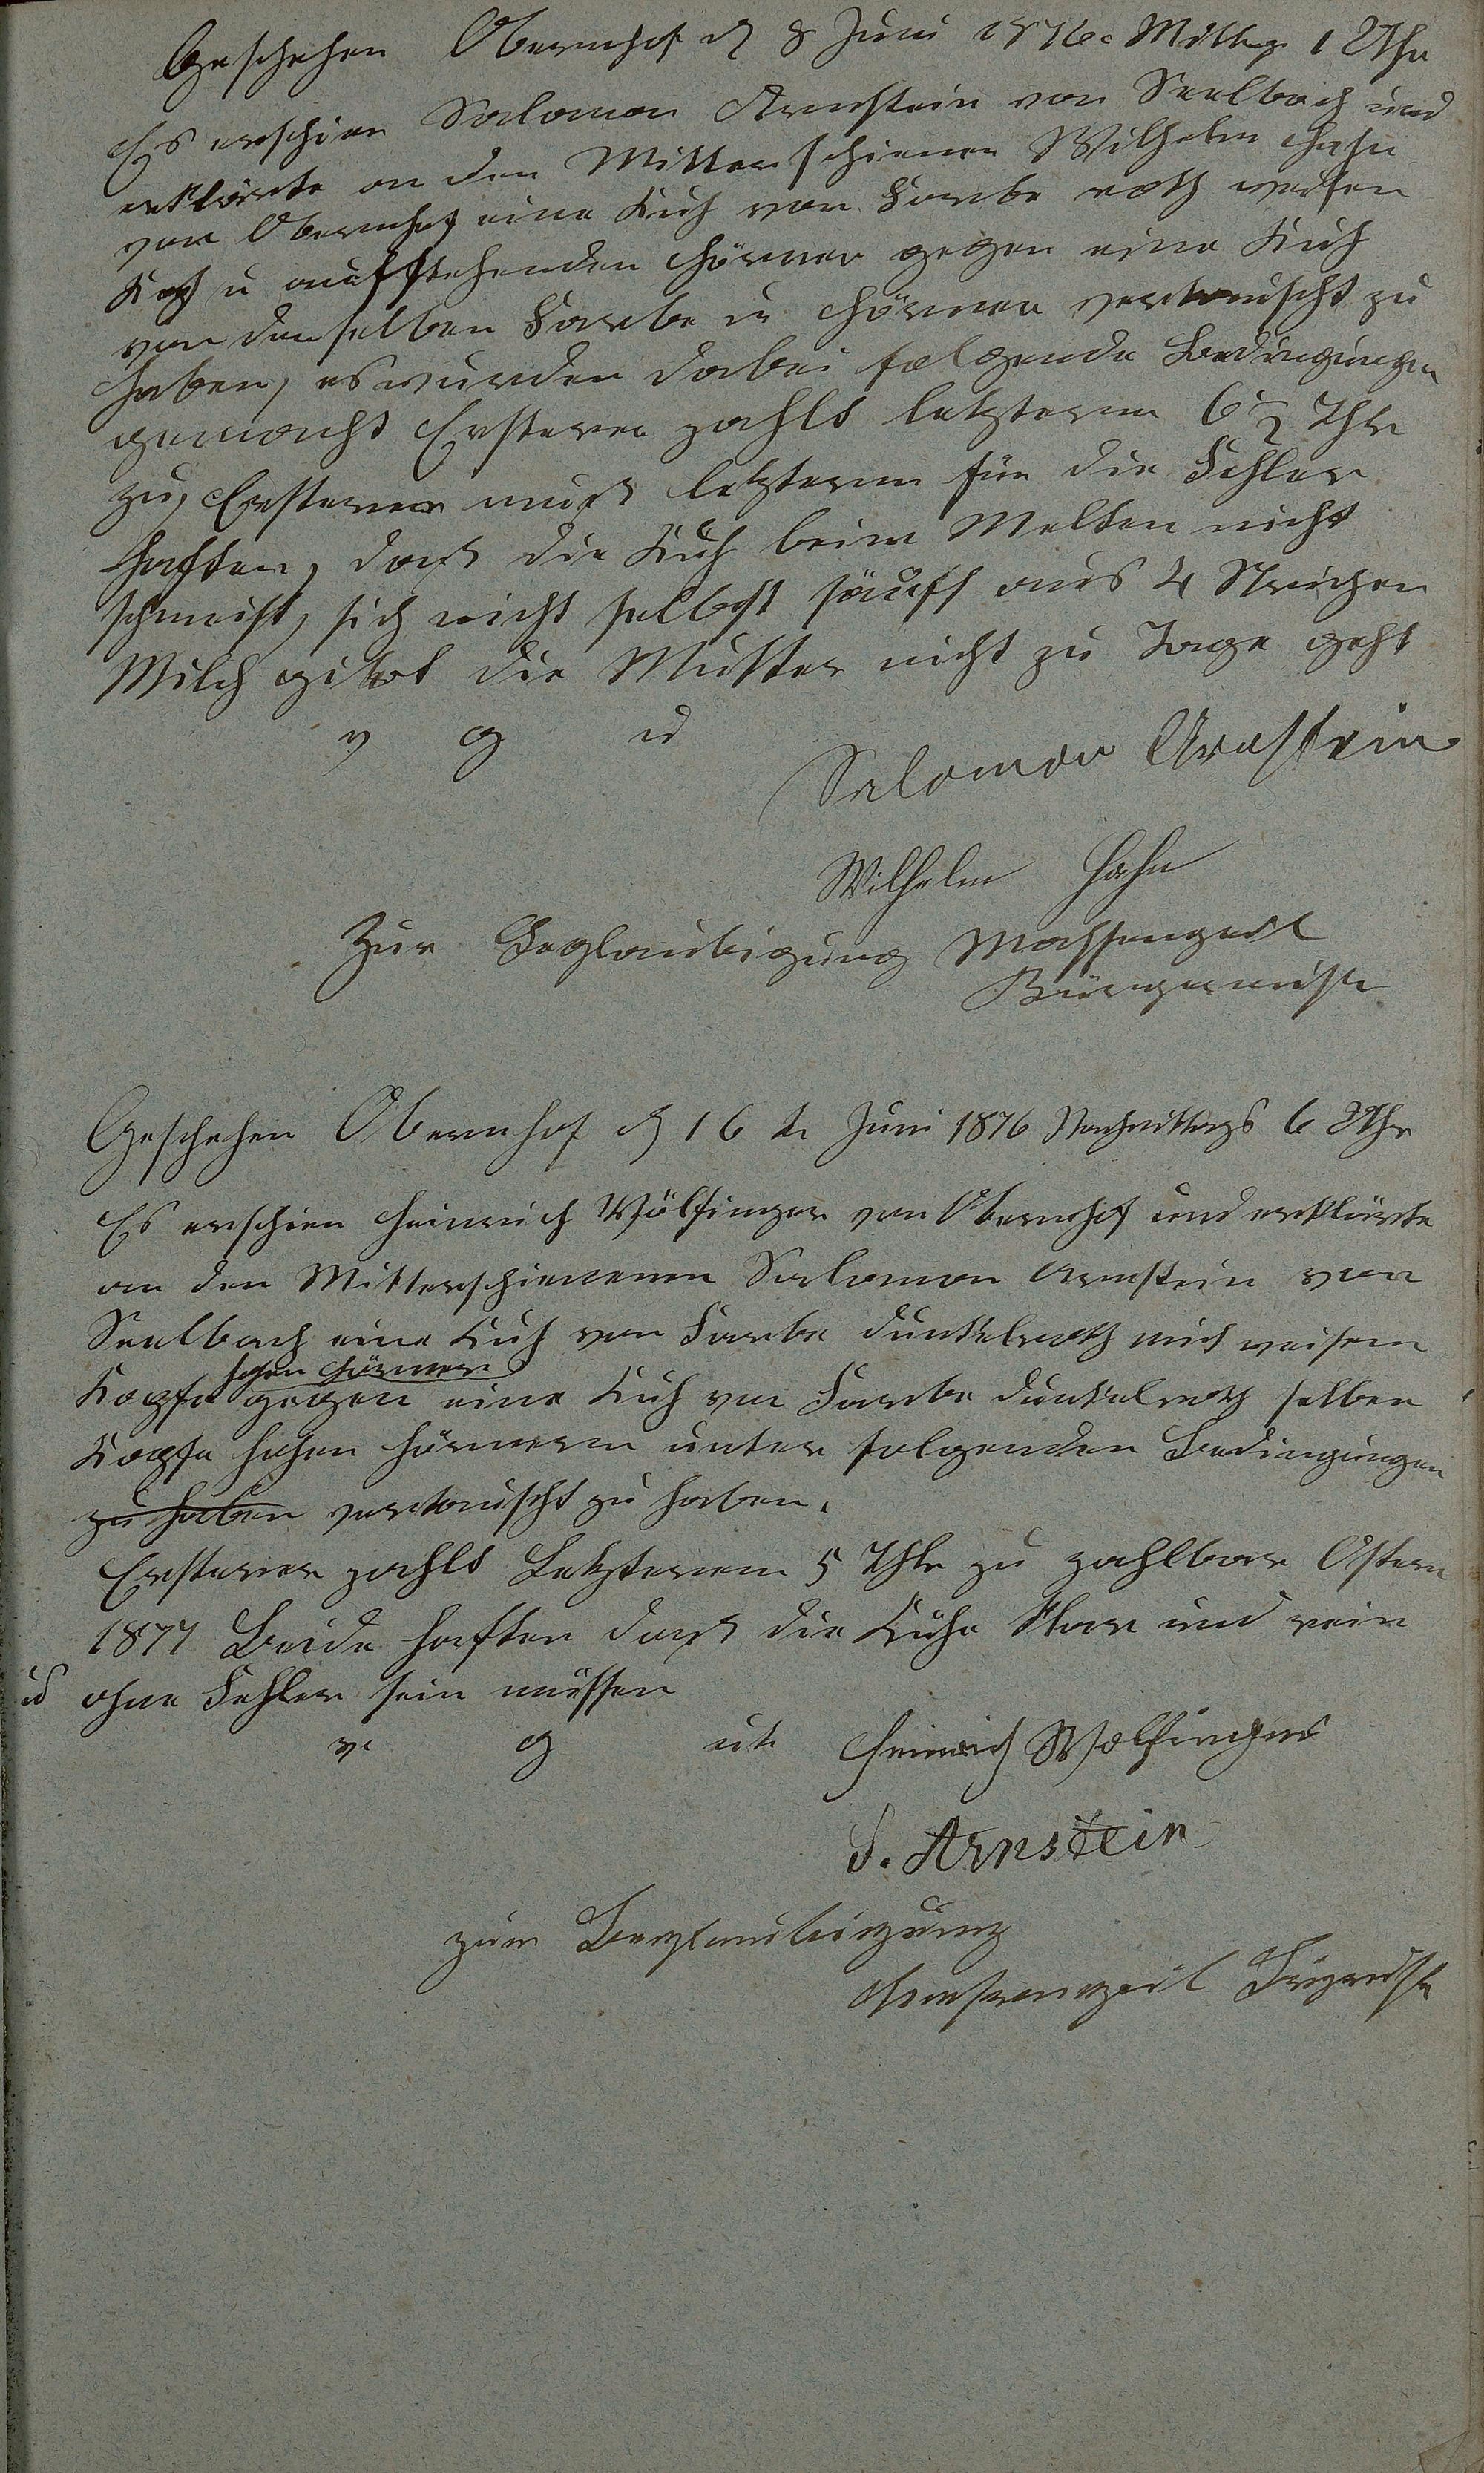 Geschehen Obernhof d 8 Juni 1876. Mittag 1 Uhr
Es erschien Salomon Arnstein von Seelbach und
erklärte an den Mitterschienen Wilhelm Hahn
von Obernhof eine Kuh von Farbe roth weisen
Kopf u aufstehenden Hörner gegen eine Kuh
von derselben Farbe u Hörner vertauscht zu
haben, es wurden dabei folgende Bedingungen
gemacht Ersterer zahlt letzterem 6½ Thlr
zu, Ersterer muß letzterem für die Fehler
haften, daß die Kuh beim Melken nicht
schmeist, sich nicht selbst säuft aus 4 Strichen
Milch gibt die Mutter nicht zu Tage geht
v g u
Salomon Arnstein
Wilhelm Hahn
Zur Beglaubigung Massengeil
Bürgermeister
Geschehen Obernhof d 16 t Juni 1876 Nachmittags 6 Uhr
Es erschien Heinrich Wölfinger von Obernhof und erklärte
an den Mitterschienenen Salomon Arnstein von
Seelbach eine Kuh von Farbe dunkelroth mit weisem
hohen Hörner
Kopfe gegen eine Kuh von Farbe dunkelroth selben
Kopfe hohen Hörnern unter folgenden Bedingungen
zu haben vertauscht zu haben.
Ersterer zahlt Letzterem 5 Thlr zu zahlbar Ostern
1877 Beide haften daß die Kühe klar und rein
u ohne Fehler sein müssen
v. g u.
Heinrich Wolfinger
S. Arnstein
zur Beglaubigung
Massengeil Bürgermstr